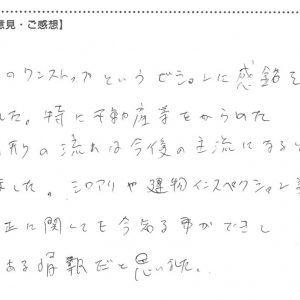 意見・ご感想】
のワンストップというビジョンに感銘を
した。特に不動産業をからめた
形の流れは今後の主流になると
ました。シロアリや建物インスペクション
正に関しても今知る事ができ
ある情報だと思いました。